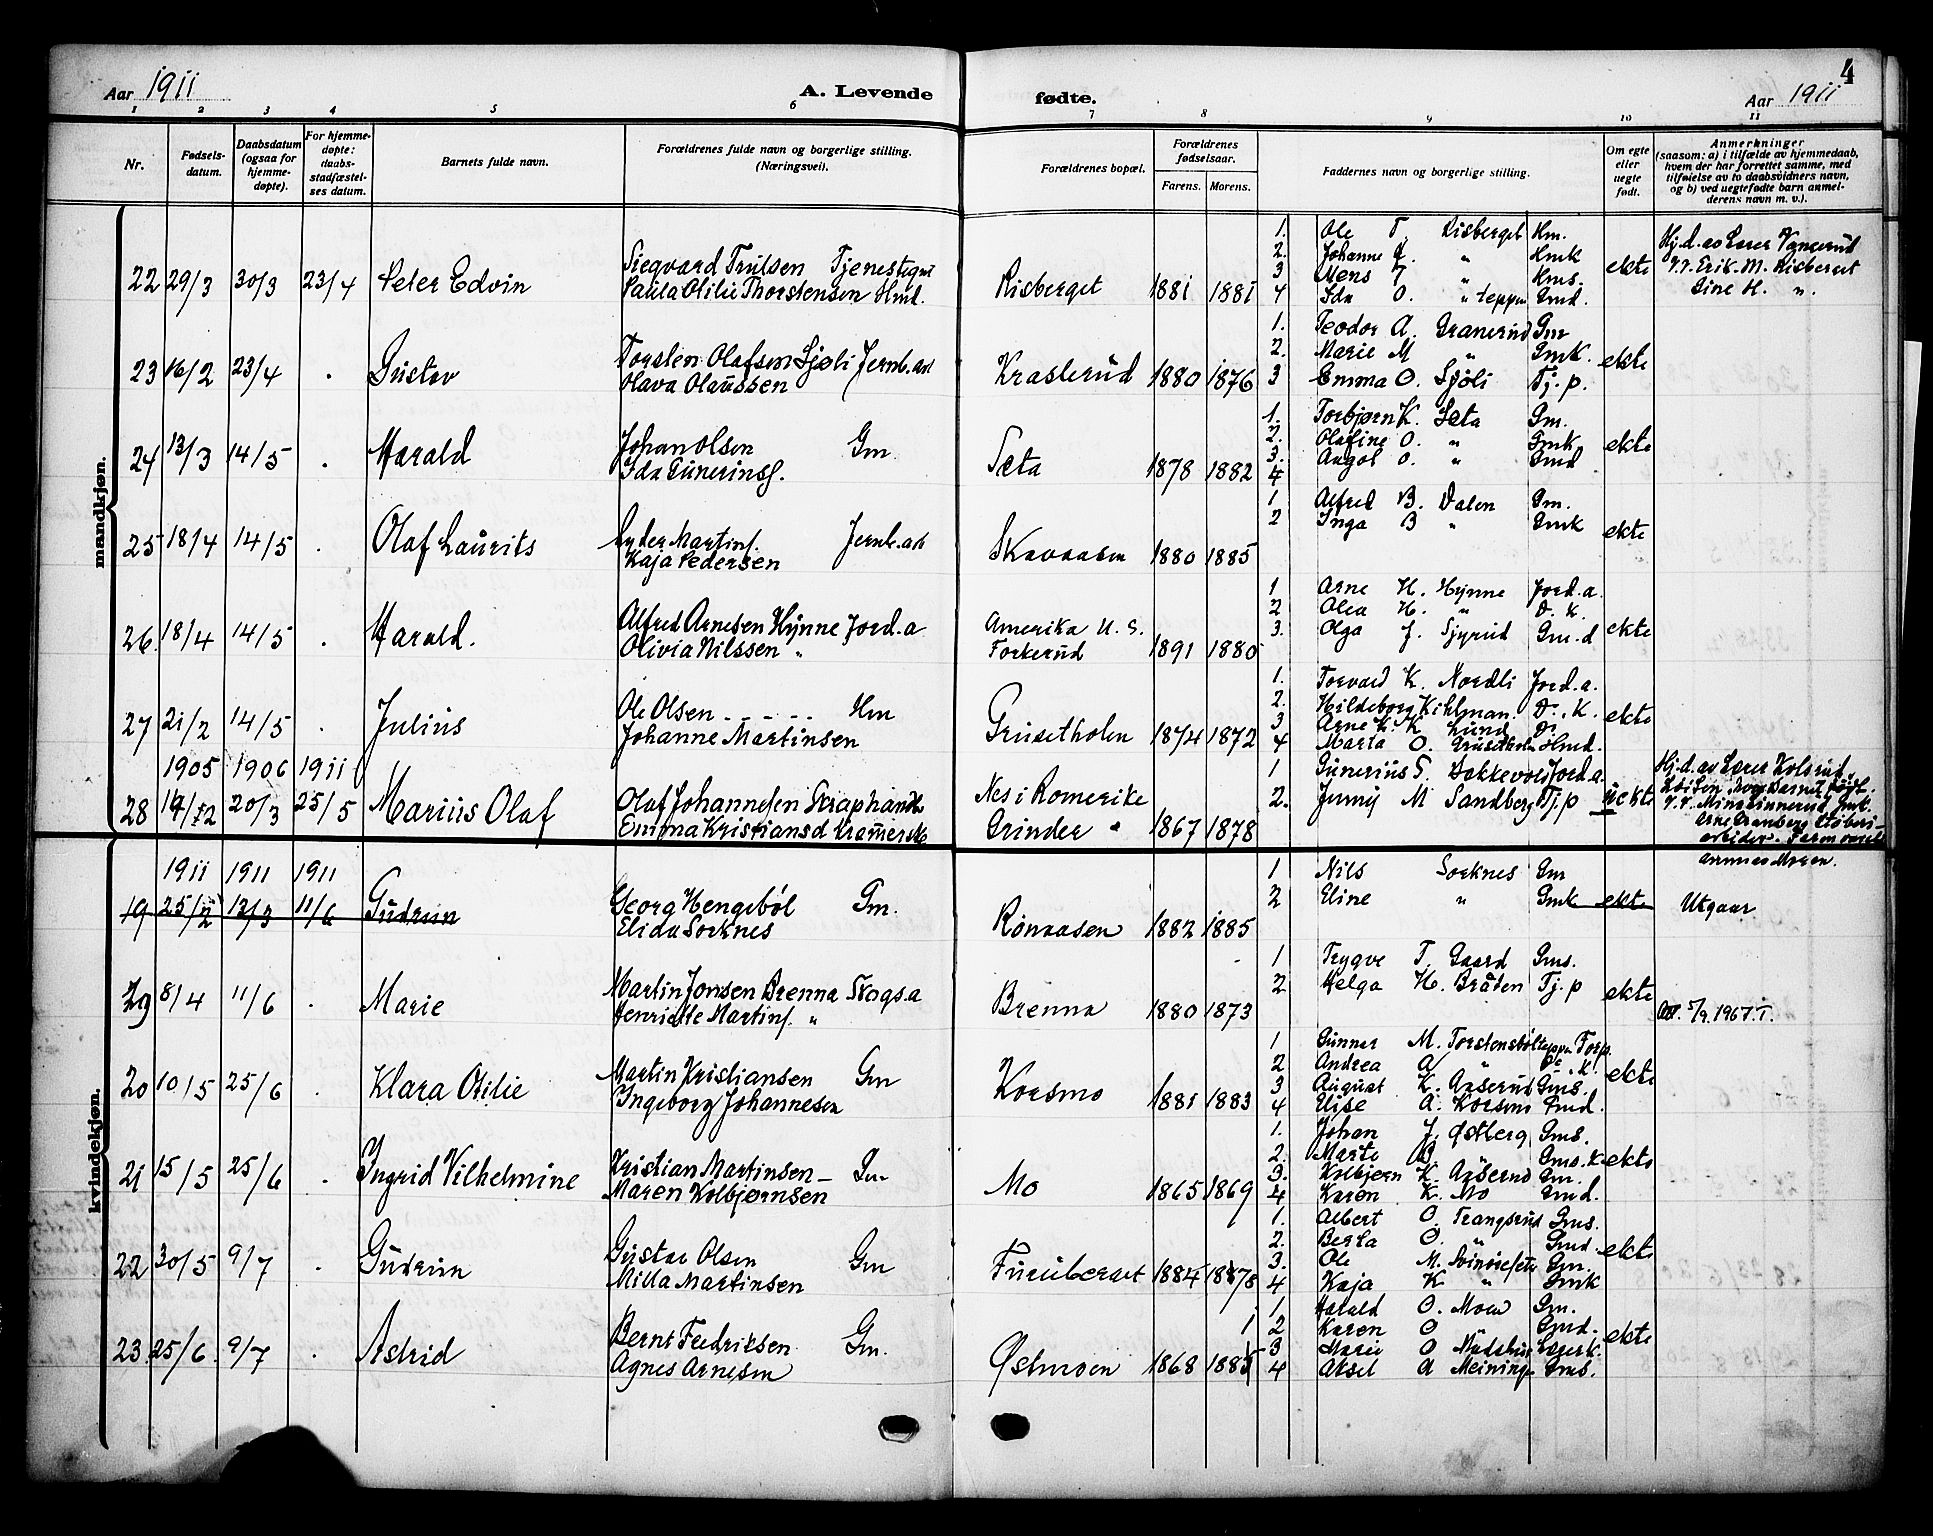 Aar 1911
A. Levende
fødte.
4
Aar 1911
1 2 3 4 5 6 7 8 9 10 11
Nr.
Fødsels-
datum.
Daabsdatum
(ogsaa for
hjemme-
døpte).
For hjemme-
døpte:
daabs-
stadfæstel-
ses datum.
Barnets fulde navn.
Forældrenes fulde navn og borgerlige stilling.
(Næringsvei).
Forældrenes bopæl.
Forældrenes
fødselsaar.
Farens. Morens.
Faddernes navn og borgerlige stilling.
Om egte
eller
uegte
født.
Anmerkninger
(saasom: a) i tilfælde av hjemmedaab,
hvem der har forrettet samme, med
tilføielse av to daabsvidners navn,
og b) ved uegtefødte barn anmel-
derens navn m. v.).
mandkjøn.
22 29/3 30/3 23/4 Peter Edvin
Sigvard Trulsen
Paula Otilie Thorstensen Hmd.
Risberget 1881 1881
1. Ole T. Risberget Hm.
2. Johanne " Hmk
3 Mens T " Hms.
4 Ida O. " teppen Gmd.
ekte
Hj. d. av Lærer
V. v. Erik M. Risberget
Sine H. ".
23 16/2 23/4 . Gustav
Torsten Olafsen Sjøli Jernb. arb
Olava Olaussen
Krasterud 1880 1876
1. Teodor A. Granerud Gm
2. Marie M " Gmk.
3 Emma O. Sjøli Tj. p.
ekte
24 13/3 14/5 . Harald
Johan Olsen Gm.
Ida Gunerins.
Sæta 1878 1882
1. Torbjørn K. Sæta Gm.
2. Olafine O. " Gmk
3. O. " Gmd
4
ekte
25 18/4 14/5 . Olaf Laurits
Syder Martins. Jernb. arb
Kaja Pedersen
Skavaasen 1880 1885
1 Alfred B. Dalen Gm.
2 Inga B " Gmk
ekte
26. 18/4 14/5 . Harald.
Alfred Arnesen Hynne Jord. a
Olivia Nilssen "
Amerika U. S.
Forkerud 1891 1880
1 Arne H. Hynne Jord. a.
2 Olea H. " D. K.
3. Olga J. Sjyrud Gm. d
ekte
27 21/2 14/5 . Julius
Ole Olsen Hm
Johanne Martinsen
Grusetholen 1874 1872
1. Torvard K. Nordli Jord. a.
2. Hildeborg Kihlman. D., K.
3 Arne K. K Lund D.
4 Marta O. Grusetholen Hmd.
ekte
1905 1906 1911
28 20/3 25/5 Marius Olaf
Olaf Johannesen Skraphandl
Emma Kristiansd Kramersk
Nes i Romerike
Grinder " 1867 1878
1 Gunerius S. Bakkevold Jord. a.
2. Jenny M Sandberg Tj. p
uekte
Hj. d. av Lærer Kolsrud.
kvindekjøn.
1911 1911 1911
19 25/2 13/3 11/6 Gudrun
Georg Hengebøl Gm.
Elida Sorknes
Rønaasen 1882 1885
1 Nils Sorknes Gm
2 Eline " Gmk
ekte
Utgaar.
29 8/4 11/6 . Marie
Martin Jonsen Brenna Skogs. a
Henriette Martins. "
Brenna 1880 1873
1 Trygve T. Gaard Gms.
2 Helga H. Bråten Tj. p
ekte
5/9. 1967. T.
20 10/5 25/6 . Klara Otilie
Martin Kristiansen Gm
Ingeborg Johannesen
Korsmo 1881 1883
1 Gunner M. Torstensbølteppen Forp.
2 Andrea A " D. K.
3 August K. Aaserud Gms.
4 Elise A. Korsmo Gmd.
ekte
21 15/5 25/6 . Ingrid Vilhelmine
Kristian Martinsen Gm
Maren Kolbjørnsen
Mo 1865 1869
1. Johan J. Østberg Gms.
2. Marte B " Gms. K
3. Kolbjørn K. Aaserud Gm.
4 Karen K. Mo Gmd.
ekte
22 30/5 9/7 . Gudrun
Gustav Olsen Gm
Milla Martinsen
Furuberget 1884 1878
1. Albert O. Trangsrud Gms.
2. Berta O. " Gmd.
3. Ole M. Gm.
4 Kaja K " Gmk
ekte
23. 25/6. 9/7 . Astrid
Bernt Fredriksen Gm.
Agnes Arnesen
Østmoen 1868 1881
1. Harald O. Moen Gm.
2 Karen O " Gmd.
3 Marie O
4 Aksel A Gms.
ekte